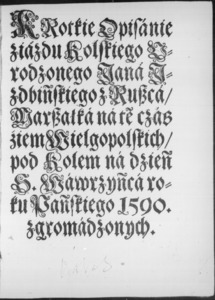 KRotkie Opisánie
ziázdu Kolskiego V-
rodzonego Janá J-
zdbińskiego z Rußcá/
Marßałká ná tẽ czás
ziem Wielgopolskich/
pod Kołem ná dzień
S. Wáwrzyńcá ro-
ku Páńskiego 1590.
zgromádzonych.